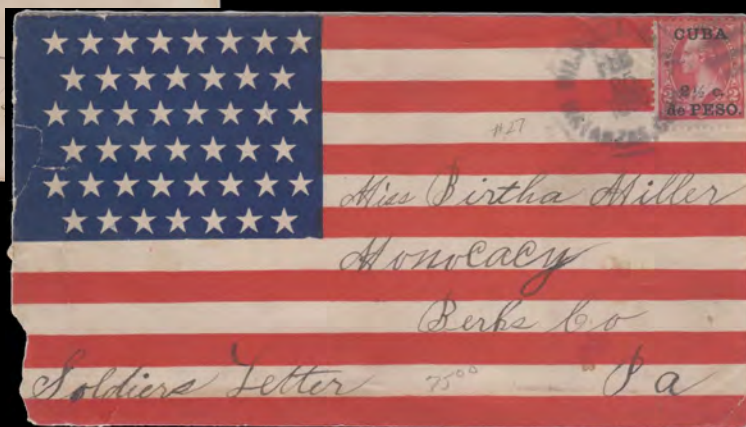 CUBA
2½ c.
de PESO.
#27
Miss Birtha Miller
Monocacy
Berks Co
Soldiers Letter 75⁰⁰ Pa